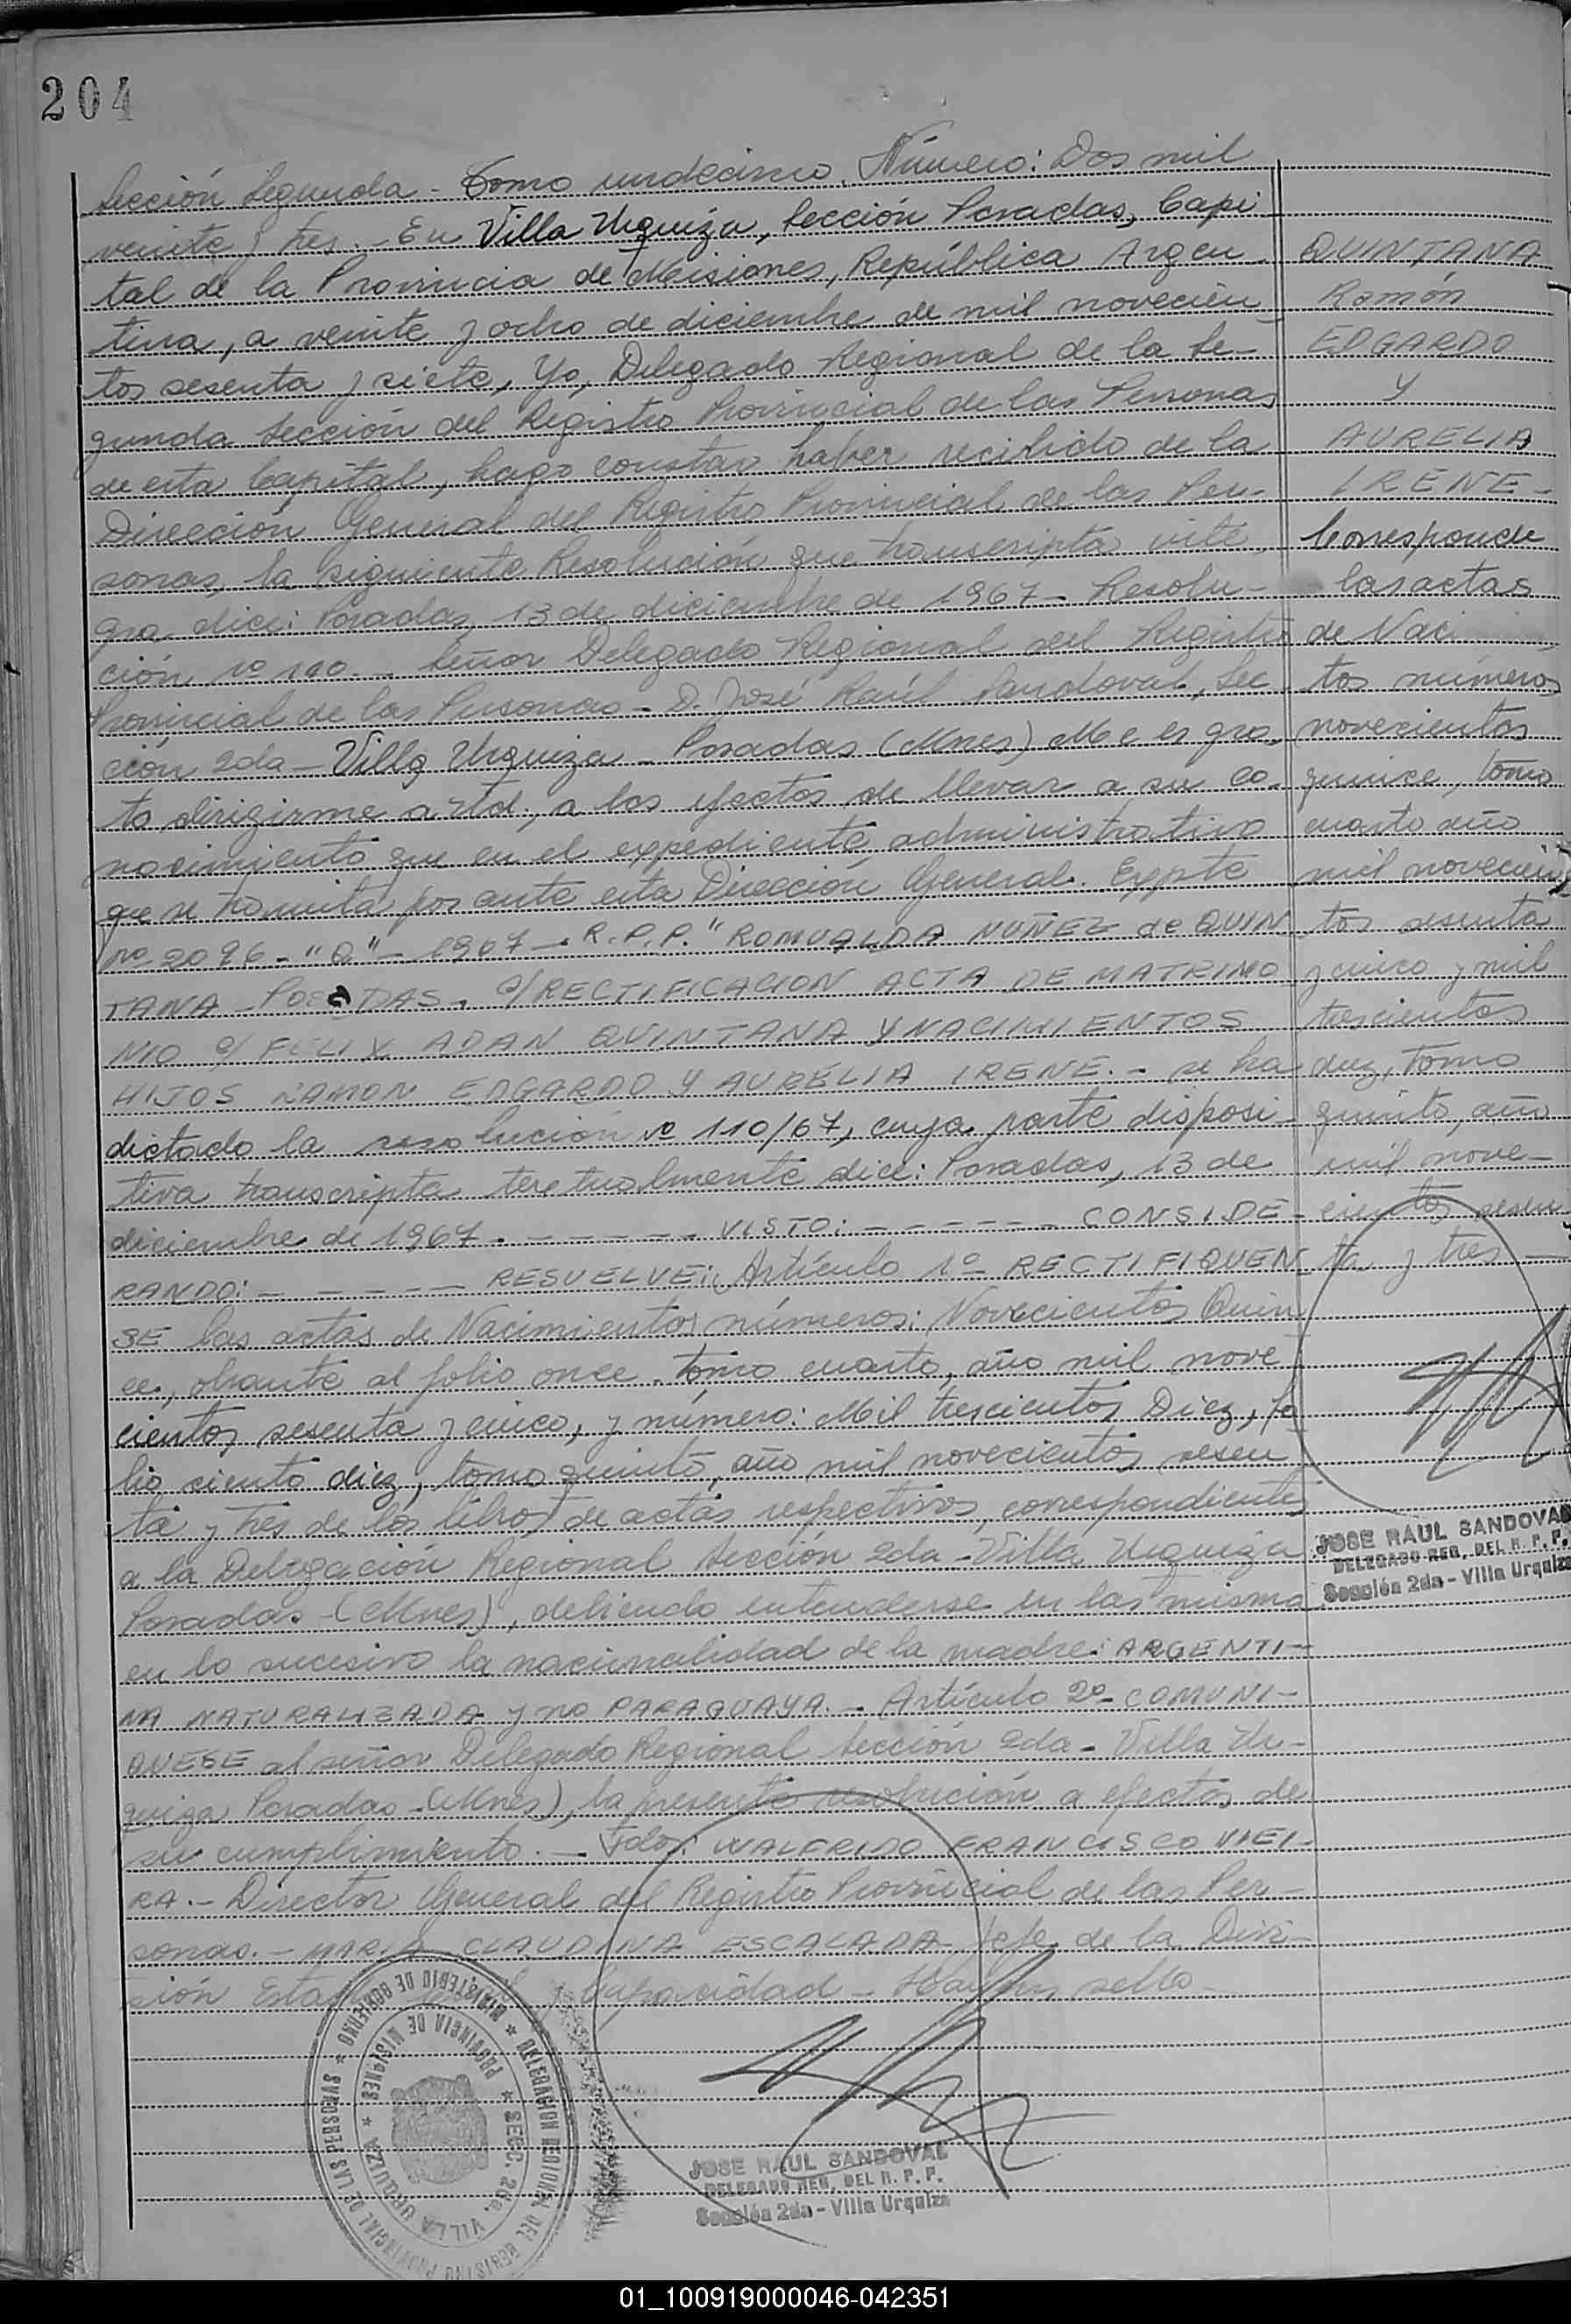 204
Sección Segunda - Tomo undécimo. Número: Dos mil
veinte y tres. - En Villa Urquiza, Sección Posadas, Capi-
tal de la Provincia de Misiones, República Argen-
tina, a veinte y ocho de diciembre de mil novecien-
tos sesenta y siete, Yo, Delegado Regional de la Se-
gunda Sección del Registro Provincial de las Personas
de esta Capital, hago constar haber recibido de la
Dirección General del Registro Provincial de las Per-
sonas, la siguiente Resolución que transcripta inte-
gra dice: Posadas, 13 de diciembre de 1967 - Resolu-
ción nº 110. - Señor Delegado Regional del Registro
Provincial de las Personas - D. José Raúl Sandoval, Sec-
ción 2da - Villa Urquiza - Posadas (Mnes) Me es gra-
to dirigirme a Ud., a los efectos de llevar a su co-
nocimiento que en el expediente administrativo
que se tramita por ante esta Dirección General. Expte
nº 2096 - "Q" - 1967 - R.P.P. "ROMUALDA NUÑEZ de QUIN
TANA - POSADAS. S/ RECTIFICACION ACTA DE MATRIMO
NIO C/ FELIX ADAN QUINTANA Y NACIMIENTOS
HIJOS RAMON EDGARDO Y AURELIA IRENE. - se ha
dictado la resolución nº 110/67, cuya parte disposi-
tiva transcripta textualmente dice: Posadas, 13 de
diciembre de 1967. - - - - - - VISTO: - - - - - - CONSIDE-
RANDO: - - - - - - RESUELVE: Artículo 1º - RECTIFIQUEN
SE las actas de Nacimientos números: Novecientos Quin
ce, obrante al folio once. tomo cuarto, año mil nove
cientos sesenta y cinco, y número: Mil trescientos Diez, fo
lio ciento diez, tomo quinto, año mil novecientos sesen
ta y tres de los libros de actas respectivos, correspondientes
a la Delegación Regional Sección 2da - Villa Urquiza
Posadas - (Mnes), debiendo entenderse en las mismas
en lo sucesivo la nacionalidad de la madre: ARGENTI-
NA NATURALIZADA y no PARAGUAYA. - Artículo 2º - COMUNI-
QUESE al señor Delegado Regional Sección 2da - Villa Ur-
quiza Posadas - (Mnes), la presente resolución a efectos de
su cumplimiento. - Fdo: WALFRIDO FRANCISCO VIEI-
RA. - Director General del Registro Provincial de las Per-
sonas. - MARIA CLAUDINA ESCALADA Jefe de la Divi-
sión Estado y Capacidad - Hay un sello -
QUINTANA
Ramón
EDGARDO
Y
AURELIA
IRENE -
Corresponde
las actas
de Naci
tos números
novecientos
quince, tomo
cuarto año
mil novecien
tos sesenta
y cinco y mil
trescientos
diez, tomo
quinto, año
mil nove-
cientos sesen
ta y tres -
JOSE RAUL SANDOVAL
DELEGADO REG. DEL R. P. P.
Sección 2da - Villa Urquiza
JOSE RAUL SANDOVAL
DELEGADO REG. DEL R. P. P.
Sección 2da - Villa Urquiza
MINISTERIO DE GOBIERNO * DELEGACION REGIONAL DEL REGISTRO PROVINCIAL DE LAS PERSONAS *
PROVINCIA DE MISIONES * SECC. 2da. VILLA URQUIZA *
01_100919000046-042351